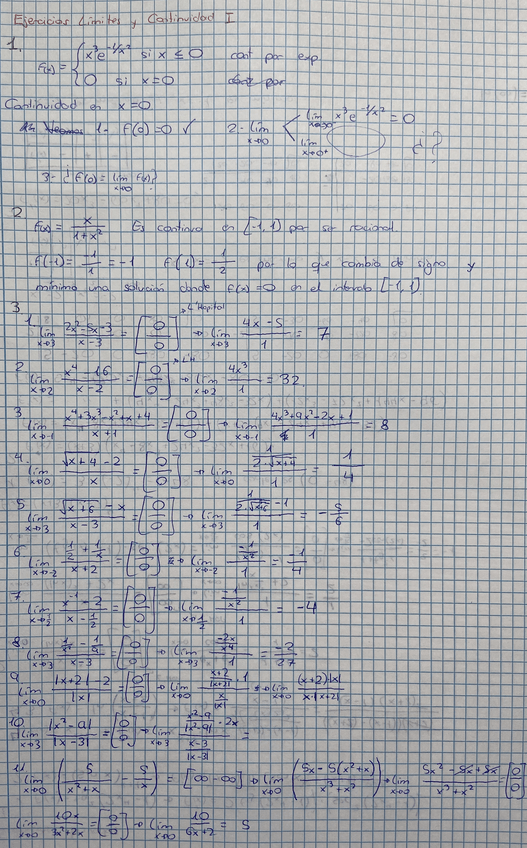 Ejercicios Límites y Continuidad I
1.
f(x) = { x³e^(-1/x²) si x ≤ 0 cont por exp
0 si x=0
Continuidad en x=0
1- f(0)=0 ✓ 2- lim x→0 < lim x→0 x³e^(-1/x²) = 0
lim x→0⁺ ¿?
3- ¿f(0) = lim x→0 f(x)?
2.
f(x) = x/(1+x²) Es continua en [-1, 1) por ser racional.
f(-1) = -1/1 = -1 f(1) = 1/2 por lo que cambia de signo y
mínimo una solución donde f(x)=0 en el intervalo [-1,1]
3. L'Hopital
1. lim x→3 (2x²-5x-3)/(x-3) = [0/0] → lim x→3 (4x-5)/1 = 7
2. lim x→2 (x⁴-16)/(x-2) = [0/0] L'H → lim x→2 4x³/1 = 32.
3. lim x→-1 (x⁴+3x³-x²+x+4)/(x+1) = [0/0] → lim x→-1 (4x³+9x²-2x+1)/1 = 8
4. lim x→0 (√(x+4) - 2)/x = [0/0] → lim x→0 (1/(2·√(x+4)))/1 = 1/4
5. lim x→3 (√(x+6) - x)/(x-3) = [0/0] → lim x→3 (1/(2·√(x+6)) - 1)/1 = -5/6
6. lim x→-2 (1/2 + 1/x)/(x+2) = [0/0] → lim x→-2 (-1/x²)/1 = -1/4
7. lim x→1/2 (x⁻¹-2)/(x-1/2) = [0/0] → lim x→1/2 (-1/x²)/1 = -4
8. lim x→3 (1/x² - 1/9)/(x-3) = [0/0] → lim x→3 (-2x/x⁴)/1 = -2/27
9. lim x→0 (|x+2|-2)/|x| = [0/0] → lim x→0 ((x+2)/|x+2| · 1)/(x/|x|) → lim x→0 (x+2)·|x|/(x·|x+2|)
10. lim x→3 |x²-9|/|x-3| = [0/0] → lim x→3 ((x²-9)/|x²-9| · 2x)/((x-3)/|x-3|) =
11. lim x→0 (5/(x²+x) - 5/x) = [∞-∞] → lim x→0 ((5x-5(x²+x))/(x³+x²)) → lim x→0 (5x²-5x+5x)/(x³+x²) = [0/0]
lim x→0 10x/(3x²+2x) = [0/0] → lim x→0 10/(6x+2) = 5